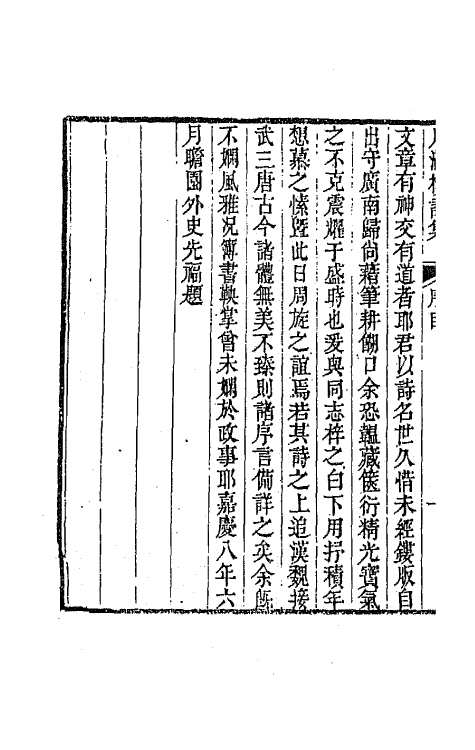 文章有神交有道者耶君以詩名世久惜未經鏤版自
出守廣南歸尙藉筆耕餬口余恐韞藏篋衍精光寶氣
之不克震耀于盛時也爰與同志梓之白下用抒積年
想慕之愫曁此日周旋之誼焉若其詩之上追漢魏接
武三唐古今諸體無美不臻則諸序言備詳之矣余旣
不嫻風雅況簿書鞅掌曾未嫻於政事耶嘉慶八年六
月瞻園外史先福題